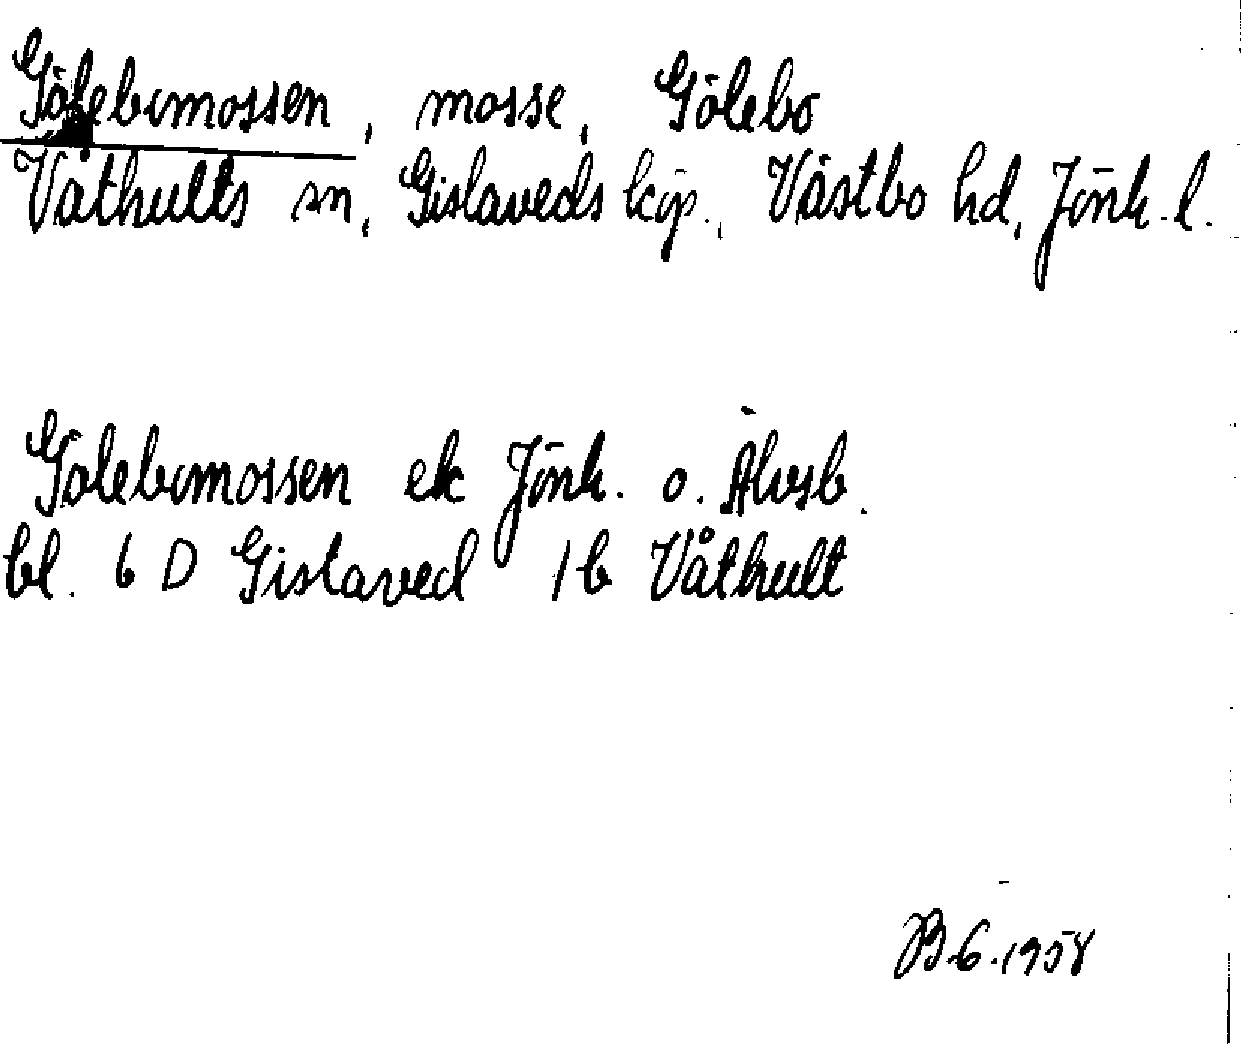 Gölebomossen, mosse, Gölebo
Våthults sn, Gislaveds köp., Västbo hd, Jönk. l.
Gölebomossen ek Jönk. o. Älvsb.
bl. 6 D Gislaved 1b Våthult
1958